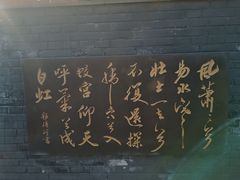 风萧萧兮
易水寒
壮士一去兮
不复还探
虎穴兮入
蛟宫仰天
呼气兮成
白虹